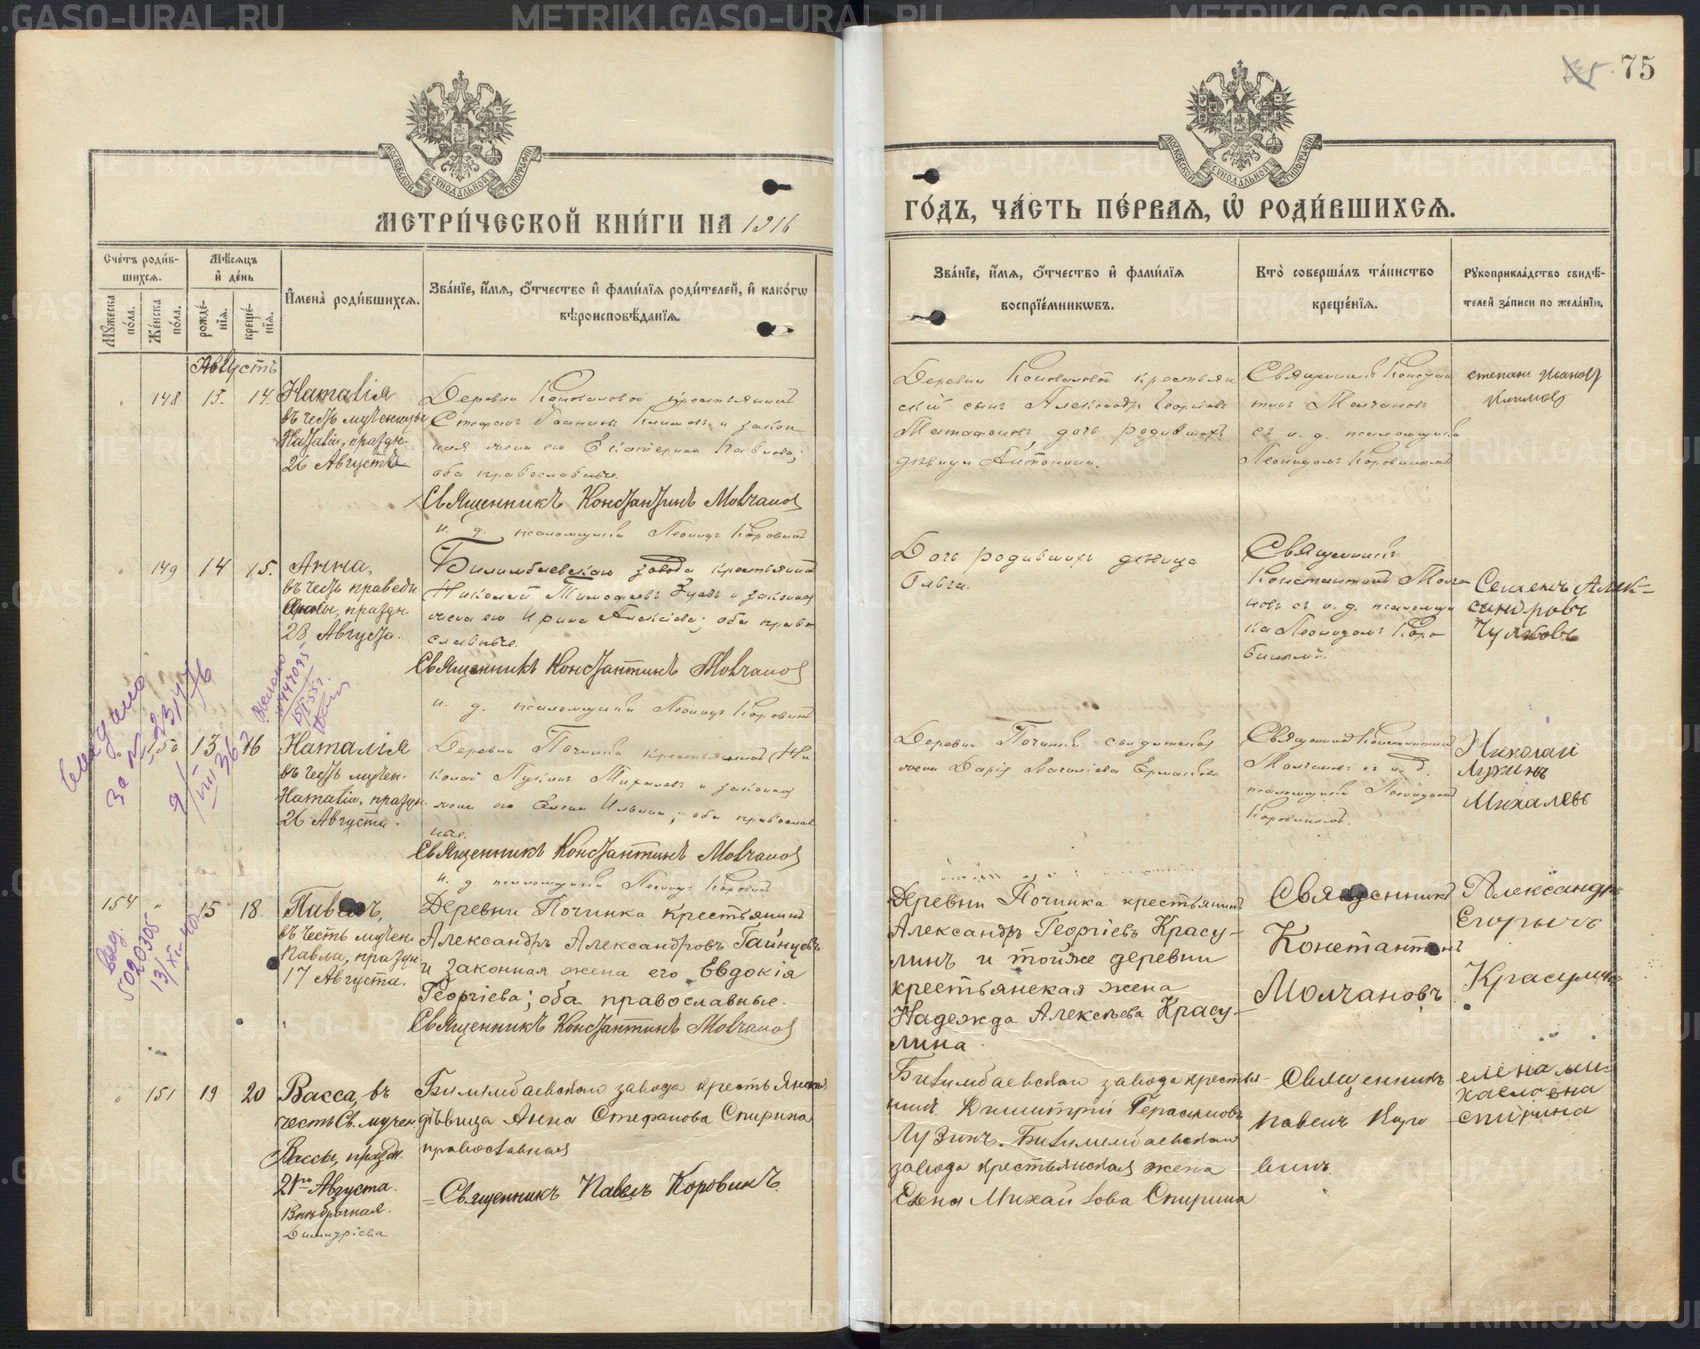 75
МОСКОВСКОЙ СѴНОДАЛЬНОЙ ТИПОГРАФІИ
МОСКОВСКОЙ СѴНОДАЛЬНОЙ ТИПОГРАФІИ
МЕТРИ́ЧЕСКОЙ КНИ́ГИ НА 1916
ГО́ДЪ, ЧА́СТЬ ПЕ́РВАЯ, Ѡ҆ РОДИ́ВШИХСЯ.
Сче́тъ роди́в-
шихся.
Мꙋжеска по́ла.
Же́нска по́ла.
Мѣ́сяцъ
и҆ де́нь
рожде́-
нїя.
креще́-
нїя.
И҆мена̀ роди́вшихся.
Зва́нїе, и҆́мя, ѻ҆́тчество и҆ фамѝлїя роди́телей, и҆ како́гѡ
вѣроисповѣ́данїя.
Зва́нїе, и҆́мя, ѻ҆́тчество и҆ фамѝлїя
воспрїе́мникѡвъ.
Кто̀ соверша́лъ та́инство
креще́нїя.
Рꙋкоприкла́дство свидѣ́-
телей за́писи по жела́нїю.
Августъ
148 13. 14. Наталія
въ честь мученицы
Наталіи, праздн.
26 Августа
Деревни Коноваловой крестьянинъ
Стефанъ Іоанновъ Климовъ и закон
ная жена его Екатерина Павлова;
оба православные.
Священникъ Константинъ Молчановъ
и. д. псаломщика Леонидъ Коровинъ
Деревни Коноваловой крестьян
скій сынъ Александръ Георгіевъ
дочь родившихъ
девица Антонина.
Священникъ Констан
тинъ Молчановъ
съ и. д. псаломщика
Леонидомъ Коровинымъ
степанъ Ивановъ
Климовъ
149 14 15. Анна,
въ честь праведн.
Анны, праздн.
28 Августа.
Билимбаевскаго завода крестьянинъ
Николай Тимофеевъ Зуевъ и законная
жена его Ирина Алексіева; оба право
славные.
Священникъ Константинъ Молчановъ
и. д. псаломщика Леонидъ Коровинъ
Дочь родившихъ девица
Ольга.
Священникъ
Константинъ Молча
новъ съ и. д. псаломщи
ка Леонидомъ Коро
винымъ.
Семенъ Алек-
сандровъ
Чулковъ
150 15 16 Наталія
въ честь мучен.
Наталіи, праздн.
26 Августа.
Деревни Починка крестьянинъ Ни
колай Лукинъ Михалевъ и законная
жена его Елена Ильина; оба православ
ные.
Священникъ Константинъ Молчановъ
и. д. псаломщика Леонидъ Коровинъ
Деревни Починка
жена Дарія Васильева Ермакова
Священникъ Константинъ
Молчановъ съ и. д.
псаломщика Леонидомъ
Коровинымъ.
Николай
Лукинъ
Михалевъ
Выдано
За № 23/476
154 " 15 18. Павелъ,
въ честь мучен.
Павла, праздн.
17 Августа.
Деревни Починка крестьянинъ
Александръ Александровъ Гайнцовъ
и законная жена его Евдокія
Георгіева; оба православные.
Священникъ Константинъ Молчановъ
Деревни Починка крестьянинъ
Александръ Георгіевъ Красу-
линъ и той же деревни
крестьянская жена
Надежда Алексѣева Красу-
лина.
Священникъ
Константинъ
Молчановъ
Александръ
Егорычъ
Красулинъ
5020305
" 151 19 20 Васса, въ
честь Св. мучен.
Вассы, праздн.
21го Августа.
Внѣбрачная.
Димитріева
Билимбаевскаго завода крестьянская
дѣвица Анна Стефанова Спирина
православная
Священникъ Павелъ Коровинъ.
Билимбаевскаго завода крестья-
нинъ Димитрій Герасимовъ
Лузинъ. Билимбаевскаго
завода крестьянская жена
Елена Михайлова Спирина
Священникъ
Павелъ Коро
винъ.
елена ми-
хаеловна
спирина
METRIKI.GASO-URAL.RU